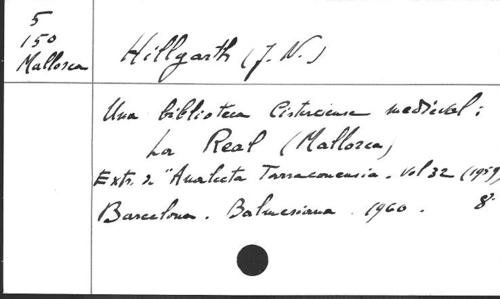 5
150
Mallorca
Hillgarth (J. N.)
Una biblioteca Cisterciense medieval:
La Real (Mallorca)
Extr. de "Analecta Tarraconensia. Vol 32 (1959)
Barcelona. Balmesiana. 1960. 8º